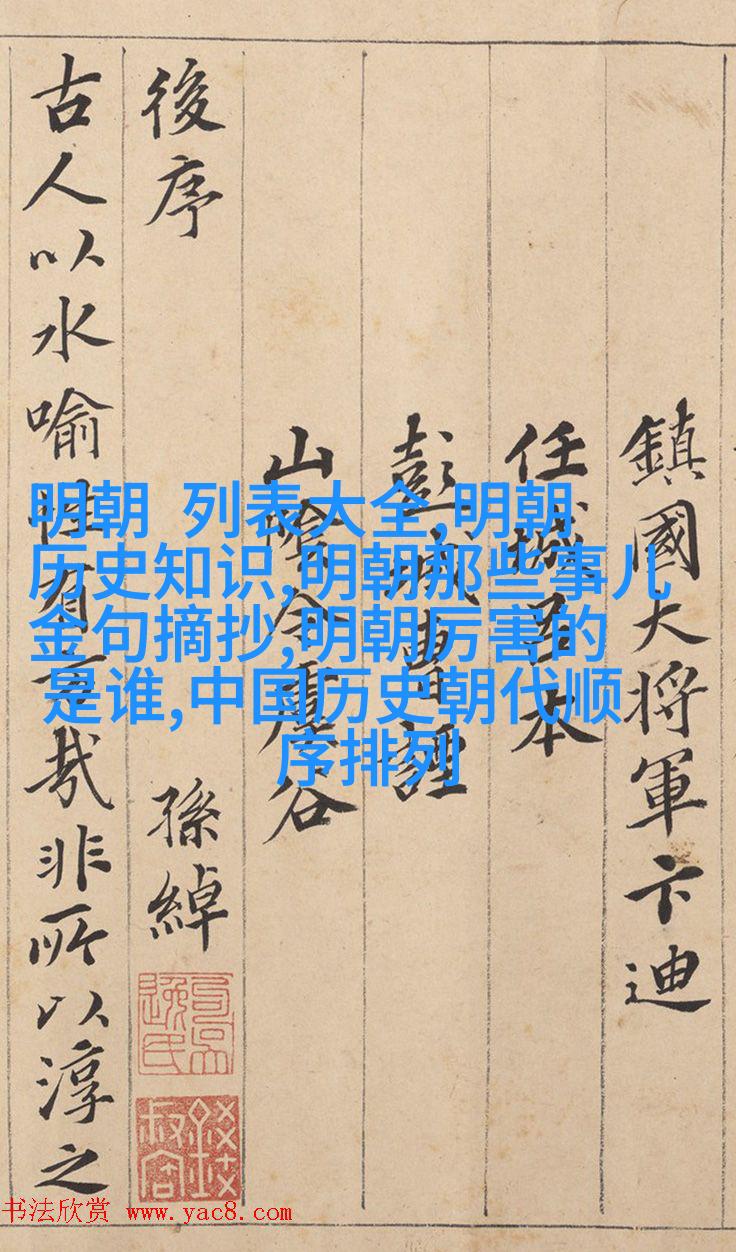 鎮國大將軍卞迪
任城呂本
彭城曹諲
山陰令虞谷
後序
孫綽
古人以水喻性有旨哉非所以淳之
明朝 列表大全,明朝
历史知识,明朝那些事儿
金句摘抄,明朝厉害的
是谁,中国历史朝代顺
序排列
书法欣赏 www.yac8.com